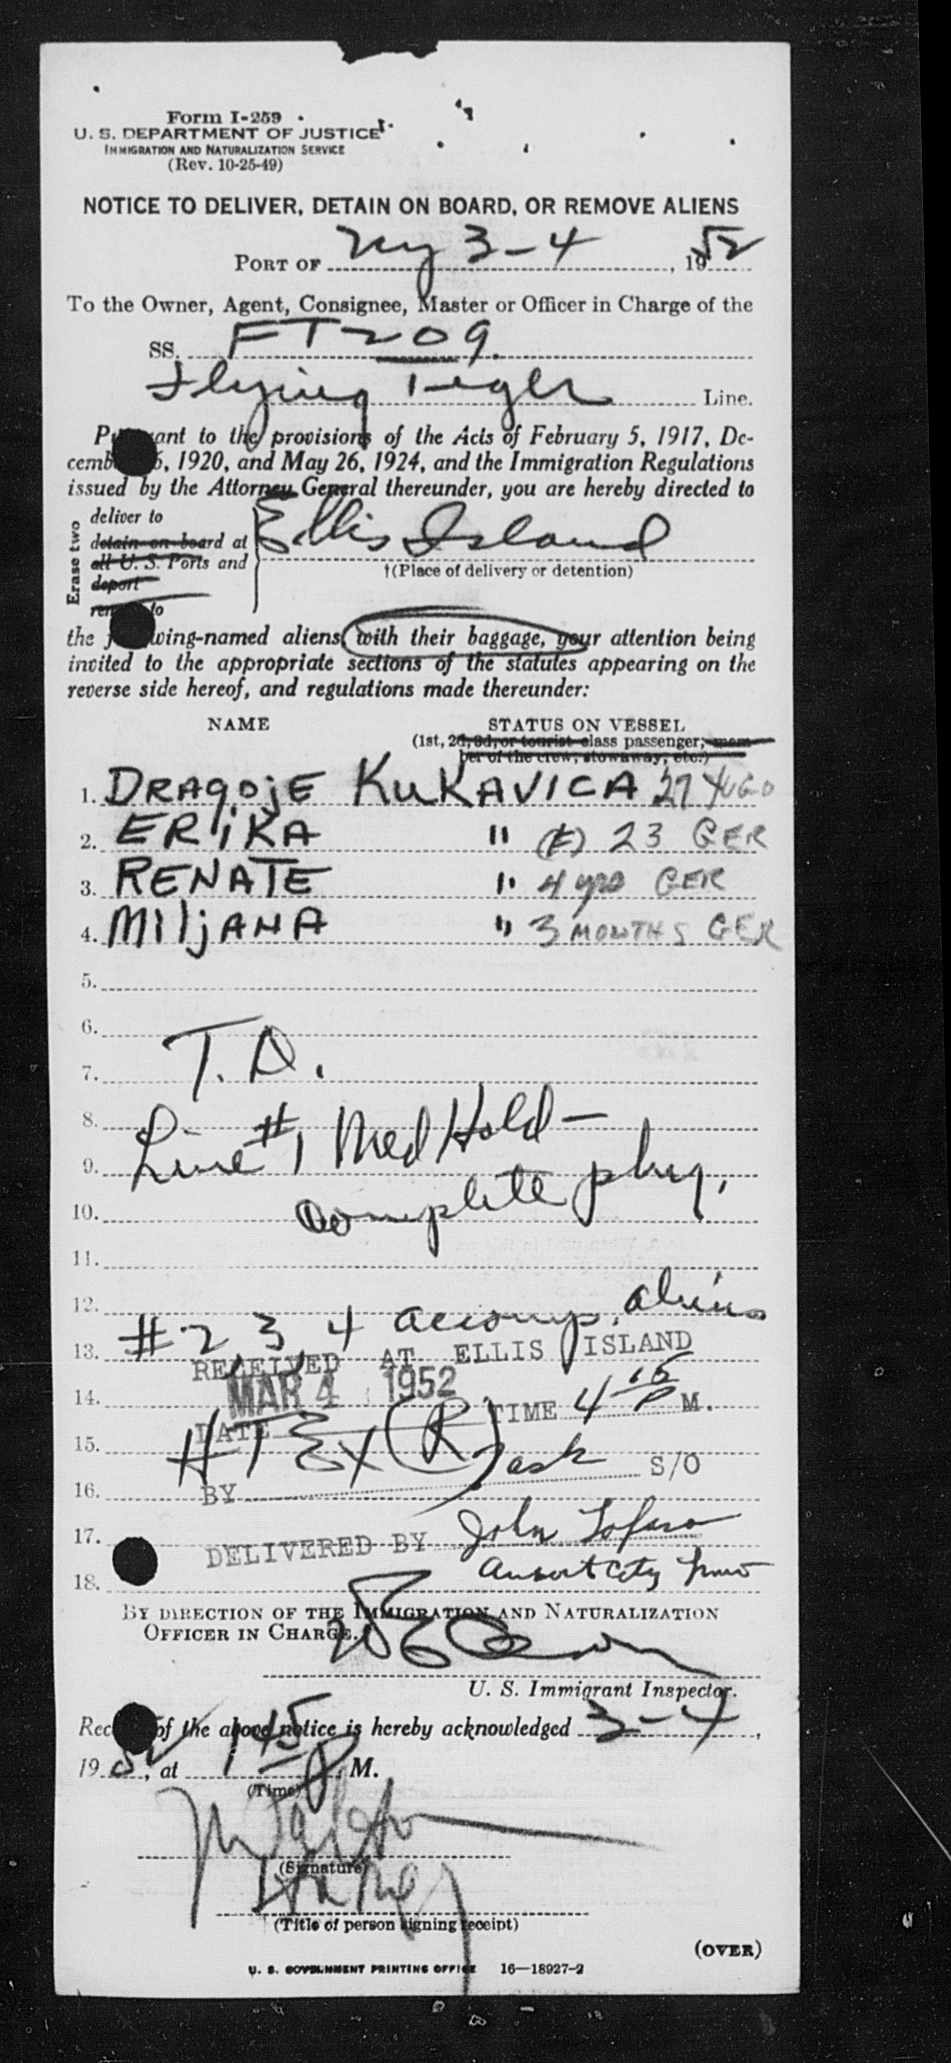 Form I-259
U. S. DEPARTMENT OF JUSTICE
IMMIGRATION AND NATURALIZATION SERVICE
(Rev. 10-25-49)
NOTICE TO DELIVER, DETAIN ON BOARD, OR REMOVE ALIENS
PORT OF NY 3-4, 1952
To the Owner, Agent, Consignee, Master or Officer in Charge of the
SS. FT 209.
Flying Tiger Line.
Pursuant to the provisions of the Acts of February 5, 1917, De-
cember 6, 1920, and May 26, 1924, and the Immigration Regulations
issued by the Attorney General thereunder, you are hereby directed to
Erase two
deliver to
detain on board at
all U. S. Ports and
deport
remove to
Ellis Island
†(Place of delivery or detention)
the following-named aliens, with their baggage, your attention being
invited to the appropriate sections of the statutes appearing on the
reverse side hereof, and regulations made thereunder:
NAME STATUS ON VESSEL
(1st, 2d, 3d, or tourist class passenger, mem-
ber of the crew, stowaway, etc.)
1. DRAGOJE KUKAVICA 27 YUGO
2. ERIKA " (E) 23 GER
3. RENATE " 4 yrs GER
4. MILJANA " 3 MONTHS GER
5.
6.
7. T. D.
8.
9. Line #1 Med Hold -
10. complete phy.
11.
12.
13. #2 3 4 accomp. aliens
RECEIVED AT ELLIS ISLAND
14. MAR 4 1952
DATE TIME 4 15 P M.
15.
S/O
16. BY
17. DELIVERED BY John
18.
BY DIRECTION OF THE IMMIGRATION AND NATURALIZATION
OFFICER IN CHARGE.
U. S. Immigrant Inspector.
Receipt of the above notice is hereby acknowledged 3-4,
1952, at 1 45 P. M.
(Time)
(Signature)
(Title of person signing receipt)
(OVER)
U. S. GOVERNMENT PRINTING OFFICE 16—18927-2